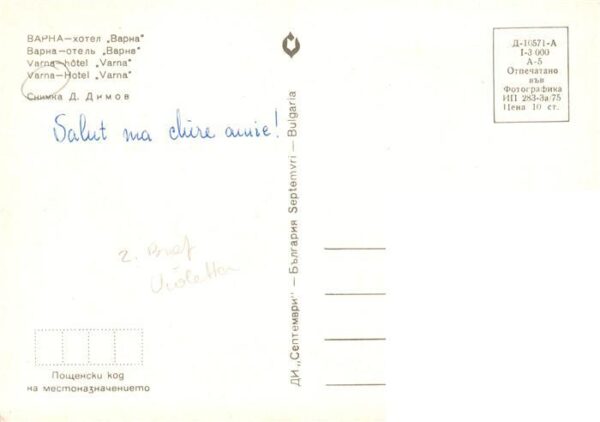 ВАРНА—хотел „Варна"
Варна—отель „Варна"
Varna—hôtel „Varna"
Varna—Hotel „Varna"
Снимка Д. Димов
Salut ma chire amie!
2. Brief
Violetta
Пощенски код
на местоназначението
ДИ „Септември" — България Septemvri — Bulgaria
Д-10571-А
I-3 000
А-5
Отпечатано
във
Фотографика
ИП 283-За/75
Цена 10 ст.